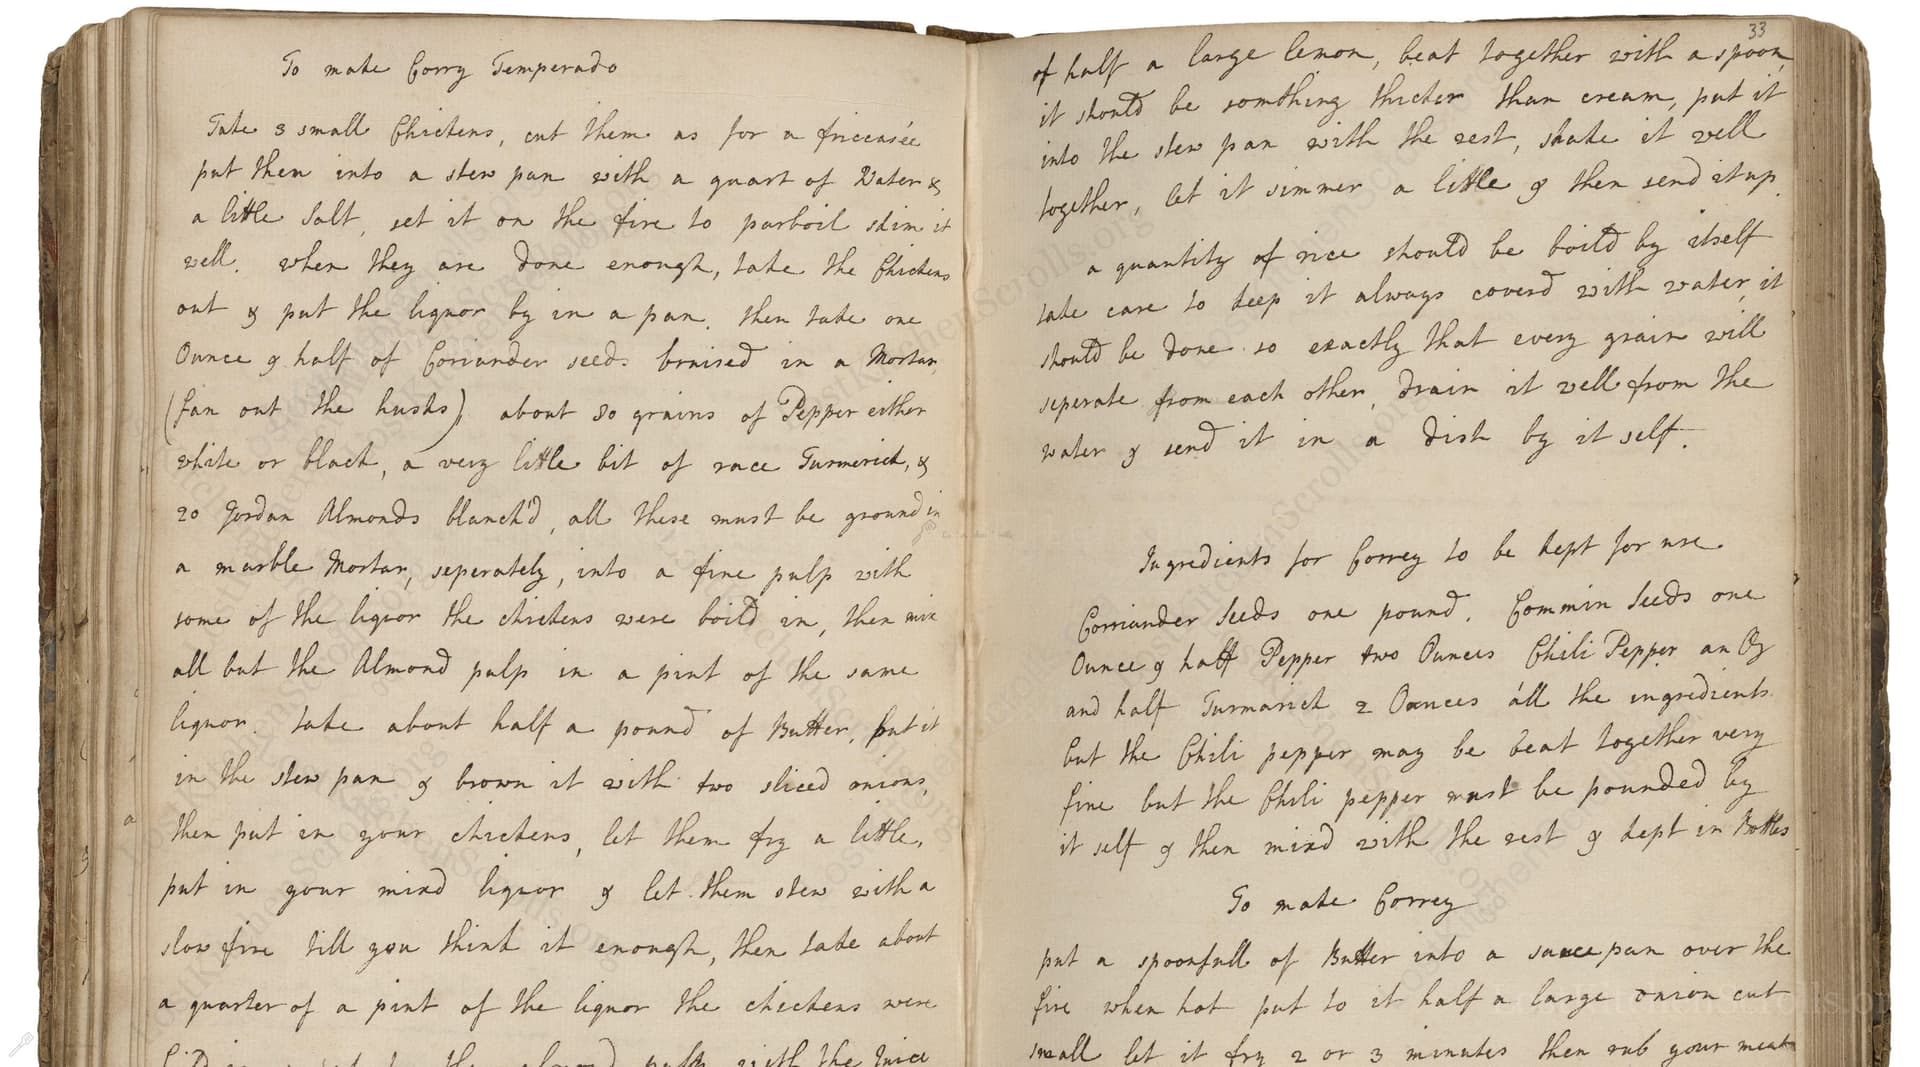 To make Corry Temperado
Take 3 small Chickens, cut them as for a fricensée
put them into a stew pan with a quart of Water &
a little Salt, set it on the fire to parboil skim it
well. when they are done enough, take the Chickens
out & put the liquor by in a pan. then take one
Ounce & half of Coriander seeds bruised in a Mortar,
(fan out the husks) about 80 grains of Pepper either
white or black, a very little bit of race Turmerick, &
20 Jordan Almonds blanch'd, all these must be ground in
a marble Mortar, seperately, into a fine pulp with
some of the liquor the chickens were boil'd in, then mix
all but the Almond pulp in a pint of the same
liquor. take about half a pound of Butter, put it
in the stew pan & brown it with two sliced onions,
then put in your chickens, let them fry a little,
put in your mixd liquor & let them stew with a
slow fire till you think it enough, then take about
a quarter of a pint of the liquor the chickens were
the almond pulp with the Juice
33
of half a large lemon, beat together with a spoon,
it should be somthing thicker than cream, put it
into the stew pan with the rest, shake it well
together, let it simmer a little & then send it up.
a quantity of rice should be boil'd by itself
take care to keep it always coverd with water, it
should be done so exactly that every grain will
seperate from each other, drain it well from the
water & send it in a dish by it self.
Ingredients for Correy to be kept for use.
Corriander Seeds one pound. Commin Seeds one
Ounce & half Pepper two Ounces Chili Pepper an Oz
and half Turmarick 2 Ounces all the ingredients
but the Chili pepper may be beat together very
fine but the Chili pepper must be pounded by
it self & then mixd with the rest & kept in Bottles
To make Correy
put a spoonfull of Butter into a saucepan over the
fire when hot put to it half a large onion cut
small let it fry 2 or 3 minutes then rub your meat